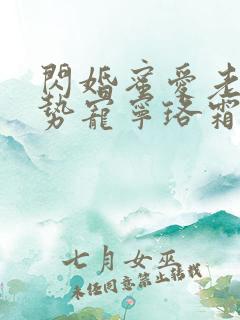 閃婚蜜愛老
勢寵寧珞霜
七月女巫
未經同意禁止轉載